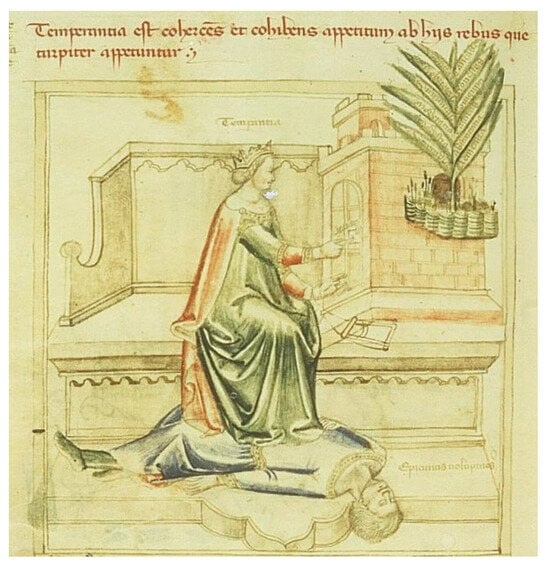 Temperantia est cohercēs et cohibens appetitum ab hijs rebus que
turpiter appetuntur
Tempantia
Epicurus